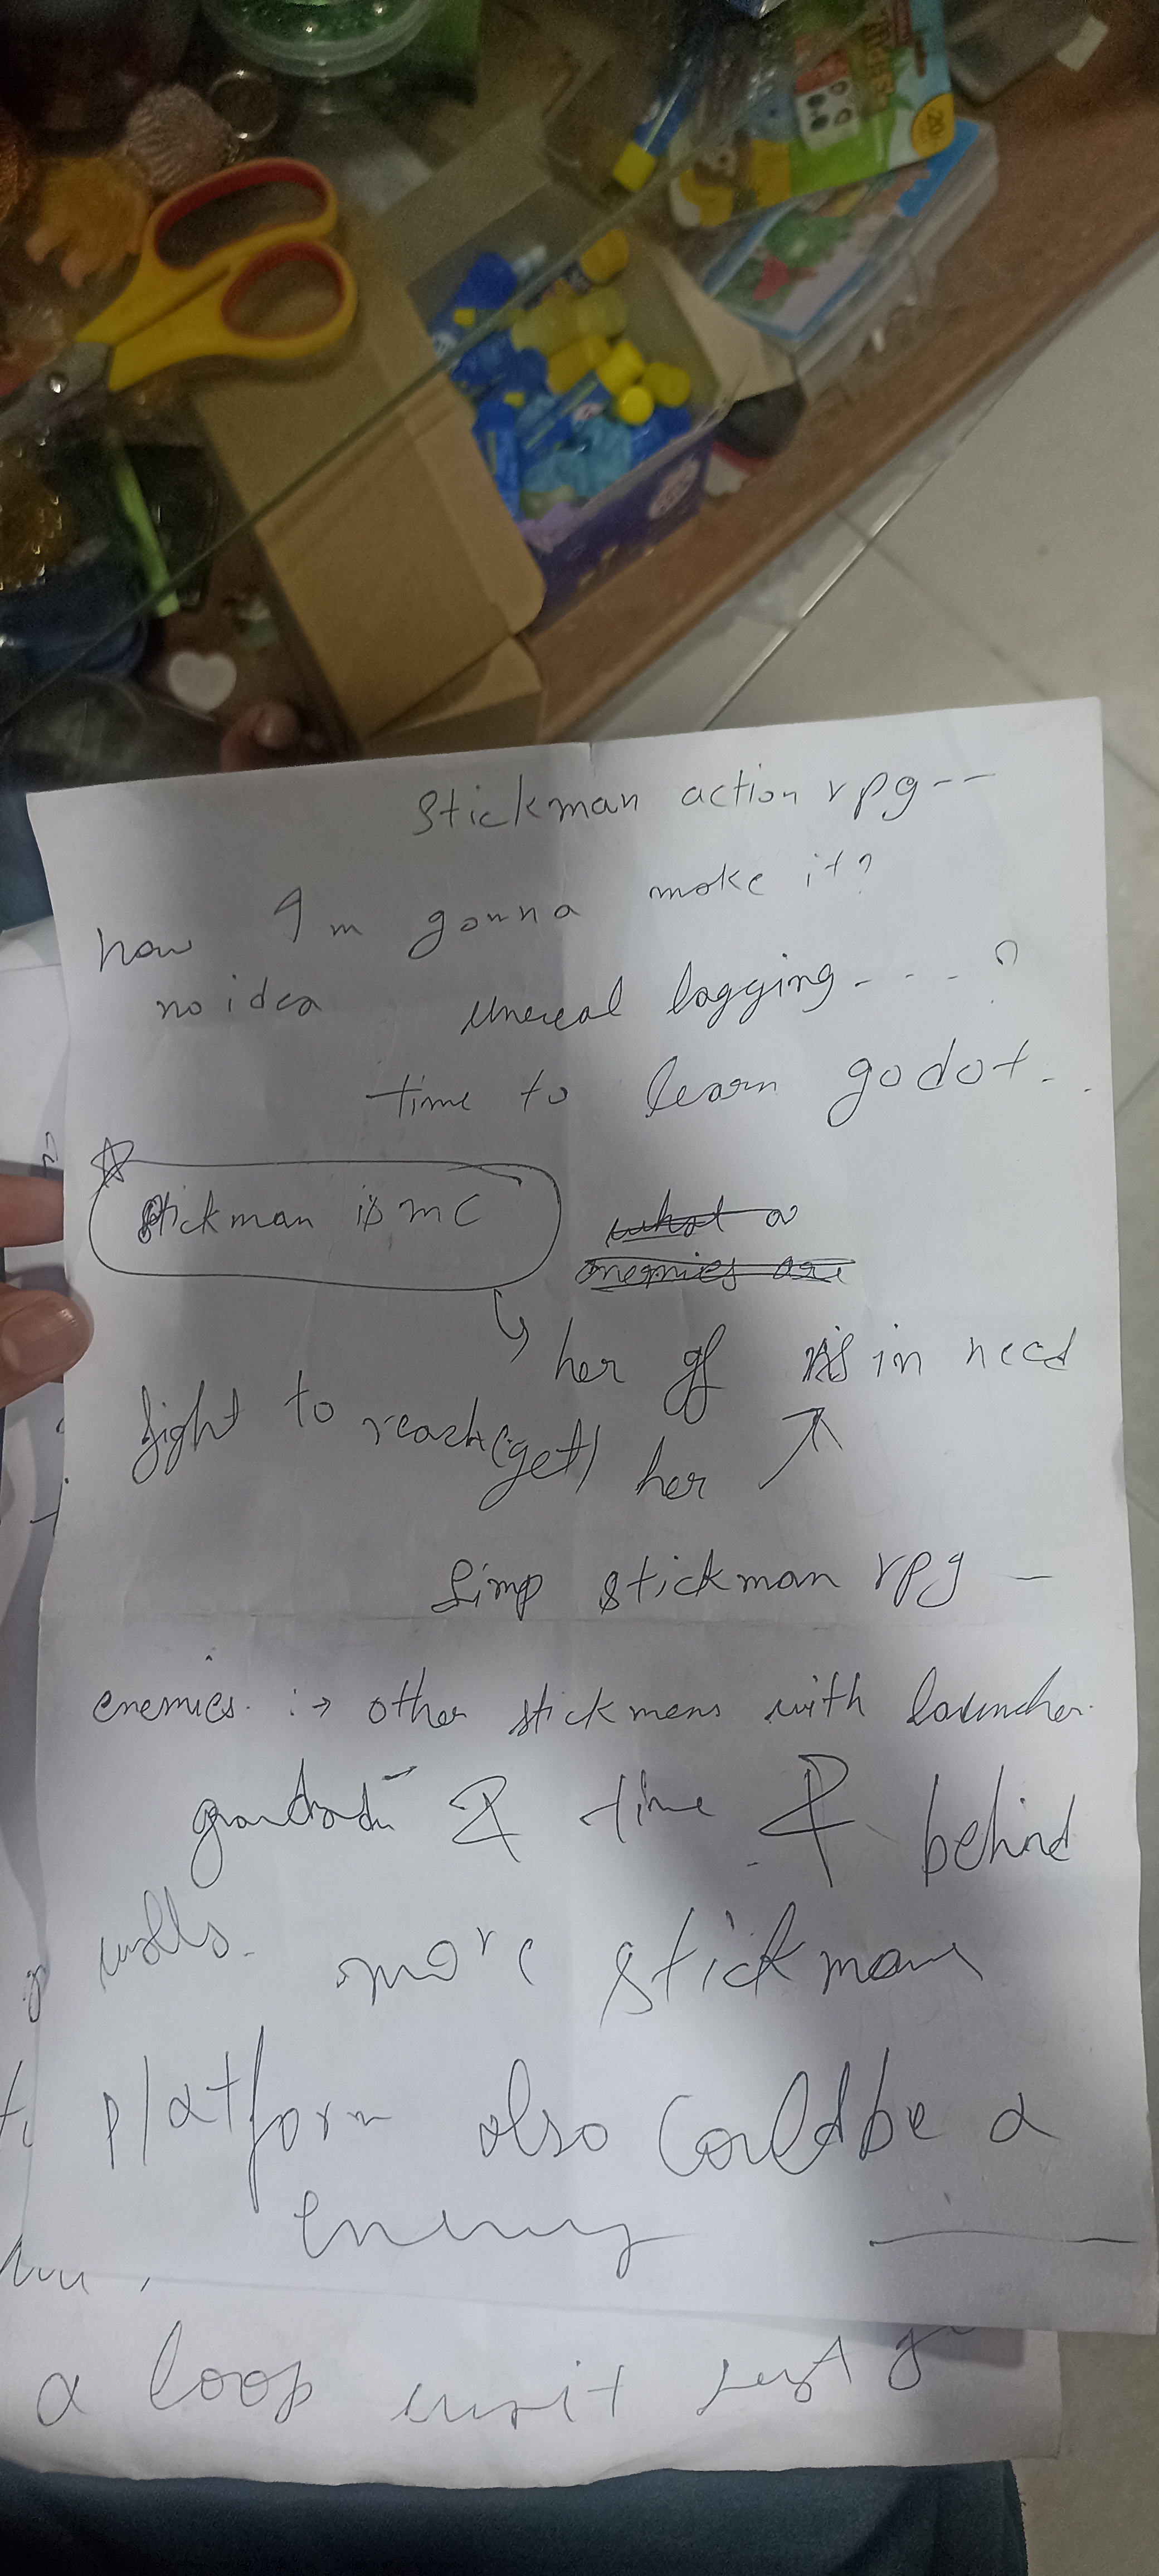 Stickman action rpg--
how I'm gonna make it?
no idea unreal lagging - - - - ?
time to learn godot - . .
Stickman is mc
what a
enemies are
her gf is in need
fight to reach (get) her
Simp stickman rpg -
enemies. :→ other stickmens with launcher.
& time & behind
walls. more stickman
platform also could be a
enemy
a loop